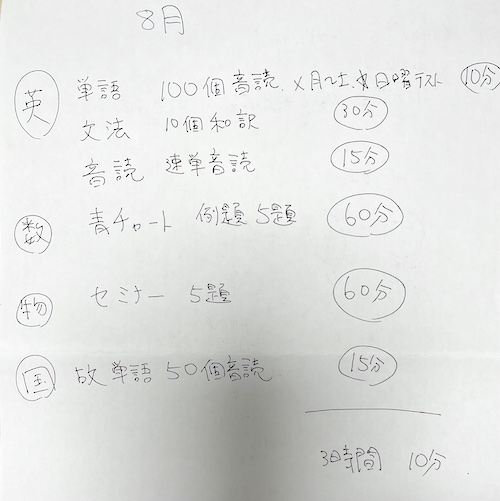 8月
英 単語 100個音読. ×月〜土. 日曜テスト 10分
文法 10個和訳 30分
音読 速単音読 15分
数 青チャート 例題 5題 60分
物 セミナー 5題 60分
国 故単語 50個音読 15分
3時間 10分